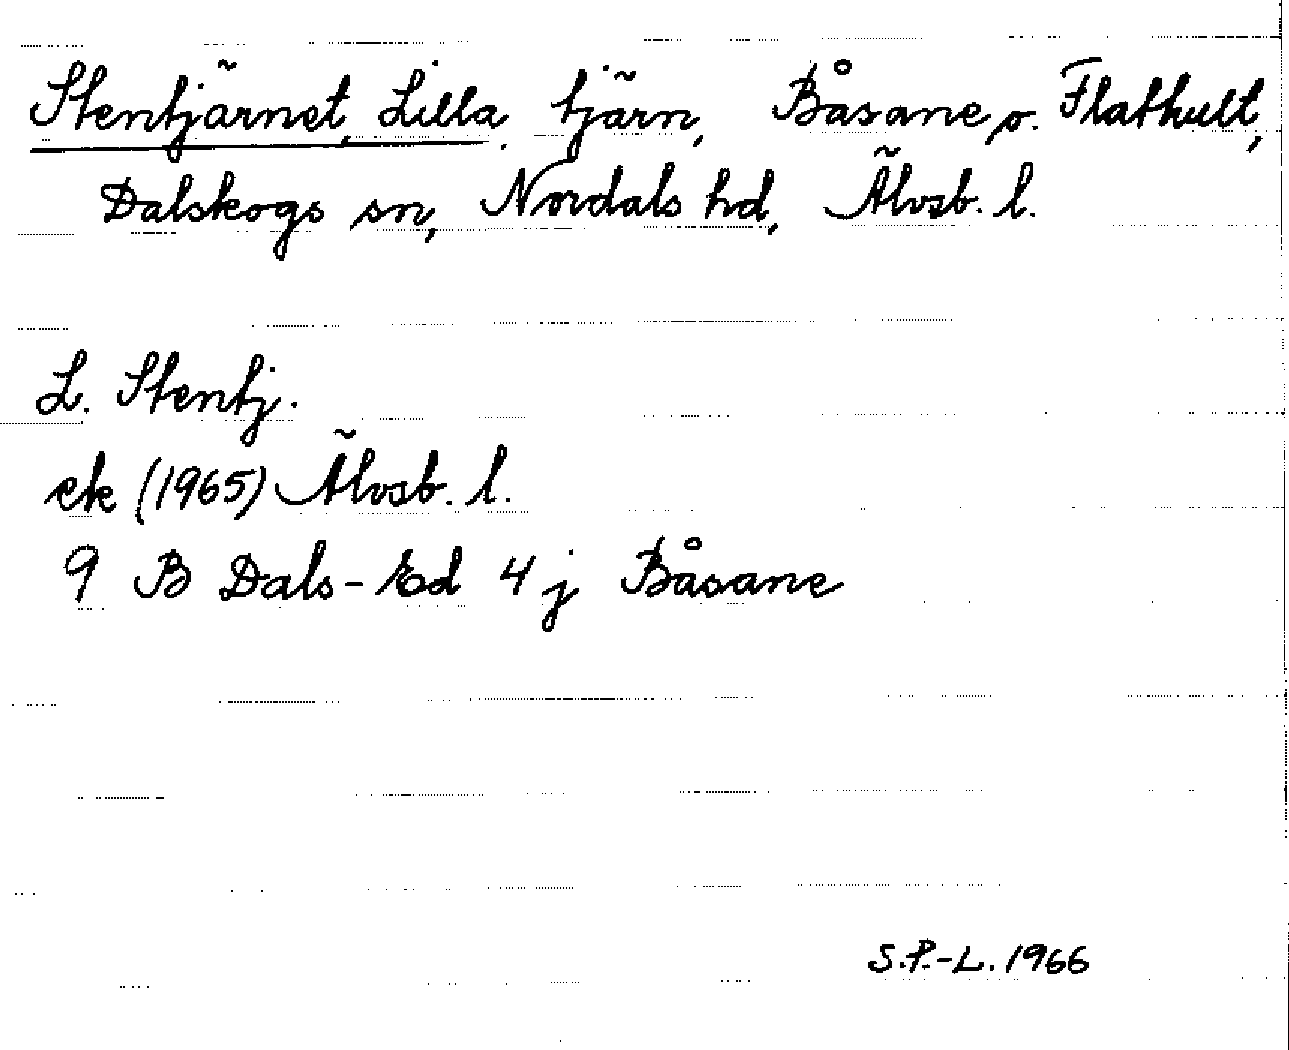 Stentjärnet, Lilla, tjärn, Båsane o. Flathult,
Dalskogs sn, Nordals hd, Älvsb. l.
L. Stentj.
ek (1965) Älvsb. l.
9 B Dals-Ed 4 j Båsane
S.P.-L. 1966